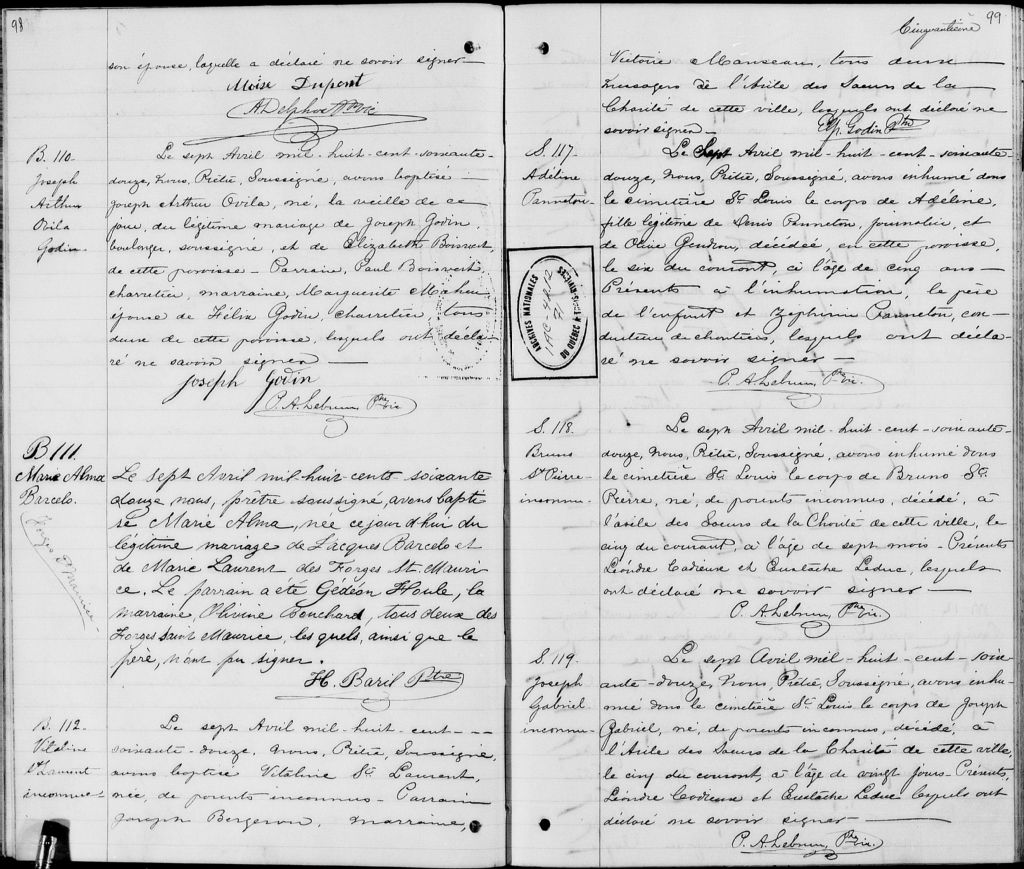 98
son épouse, laquelle a déclaré ne savoir signer —
Moïse Dupont
A Delphos Ptre vic
B. 110
Joseph
Arthur
Ovila
Godin
Le sept Avril mil-huit-cent-soixante-
douze, Nous, Prêtre, Soussigné, avons baptisé
Joseph Arthur Ovila, né, la vieille de ce
jour, du légitime mariage de Joseph Godin,
boulanger, soussigné, et de Elizabeth Boisvert,
de cette paroisse — Parrain, Paul Boisvert,
charretier, marraine, Marguerite Maheu
épouse de Félix Godin, charretier, tous
deux de cette paroisse, lesquels ont décla-
ré ne savoir signer —
Joseph Godin
P. A. Lebrun, Ptre vic
B 111
Marie Alma
Barcelo.
Forges St Maurice
Le sept Avril mil-huit cents soixante
douze nous, prêtre soussigné, avons bapti
sé Marie Alma, née cejourd'hui du
légitime mariage de Jacques Barcelo et
de Marie Laurent des Forges St Mauri
ce. Le parrain a été Gédéon Houle, la
marraine, Olivine Bouchard, tous deux des
Forges Saint Maurice, les quels, ainsi que le
père, n'ont pu signer.
H. Baril Ptre
B. 112
Vitaline
St Laurent
inconnue
Le sept Avril mil-huit-cent---
soixante-douze, Nous, Prêtre, Soussigné,
avons baptisé Vitaline St. Laurent,
née, de parents inconnus — Parrain
Joseph Bergeron, marraine,
99
Cinquantième
Victoire Manseau, tous deux —
de l'Asile des Soeurs de la
Charité de cette ville, lesquels ont déclaré ne
savoir signer —
Godin Ptre
S. 117
Adéline
Panneton
Le Sept Avril mil-huit-cent-soixante
douze, Nous, Prêtre, Soussigné, avons inhumé dans
le cimetière St. Louis le corps de Adéline,
fille légitime de Denis Panneton, journalier, et
de Olive Gendron, décédée, en cette paroisse,
le six du courant, à l'âge de cinq ans —
Présents à l'inhumation, le père
de l'enfant et Zéphirin Panneton, con-
ducteur de chantiers, lesquels ont décla-
ré ne savoir signer —
P. A. Lebrun, Ptre vic.
ARCHIVES NATIONALES
DU QUÉBEC
S. 118
Bruno
St Pierre
inconnu
Le sept Avril mil-huit-cent-soixante-
douze, Nous, Prêtre, Soussigné, avons inhumé dans
le cimetière St. Louis le corps de Bruno St.
Pierre, né, de parents inconnus, décédé, à
l'asile des Soeurs de la Charité de cette ville, le
cinq du courant, à l'âge de sept mois — Présents
Léandre Cadieux et Eustache Leduc, lesquels
ont déclaré ne savoir signer —
P. A. Lebrun, Ptre vic.
S. 119
Joseph
Gabriel
inconnu
Le sept Avril mil-huit-cent-soix-
ante-douze, Nous, Prêtre, Soussigné, avons inhu-
mé dans le cimetière St. Louis le corps de Joseph
Gabriel, né, de parents inconnus, décédé, à
l'Asile des Soeurs de la Charité de cette ville,
le cinq du courant, à l'âge de vingt jours — Présents,
Léandre Cadieux et Eustache Leduc lesquels ont
déclaré ne savoir signer —
P. A. Lebrun, Ptre vic.